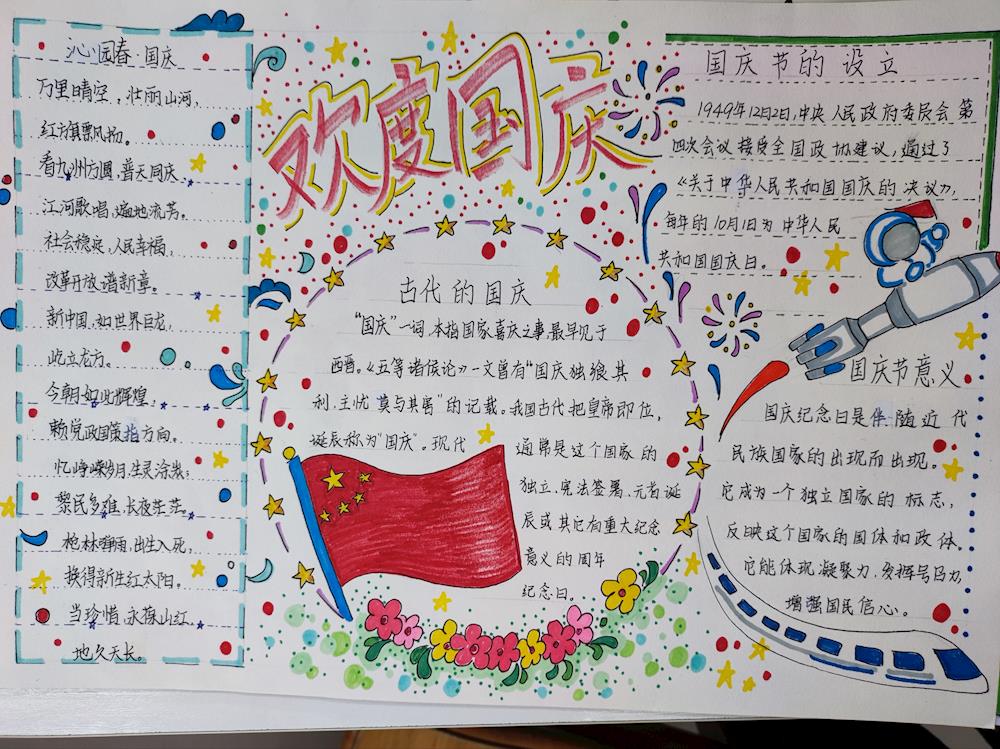 沁园春·国庆
万里晴空，壮丽山河，
红旗飘扬。
看九州方圆，普天同庆，
江河歌唱，遍地流芳。
社会稳定，人民幸福，
改革开放谱新章。
新中国，如世界巨龙，
屹立龙方。
今朝如此辉煌，
赖党政国策指方向。
忆峥嵘岁月，生灵涂炭；
黎民多难，长夜茫茫。
枪林弹雨，出生入死，
换得新生红太阳。
当珍惜，永葆山红，
地久天长。
欢度国庆
古代的国庆
“国庆”一词，本指国家喜庆之事，最早见于
西晋。《五等诸侯论》一文曾有“国庆独飨其
利，主忧莫与其害”的记载。我国古代把皇帝即位，
诞辰称为“国庆”。现代
通常是这个国家的
独立、宪法签署、元首诞
辰或其它有重大纪念
意义的周年
纪念日。
国庆节的设立
1949年12月2日，中央人民政府委员会第
四次会议接受全国政协建议，通过了
《关于中华人民共和国国庆的决议》，
每年的10月1日为中华人民
共和国国庆日。
国庆节意义
国庆纪念日是伴随近代
民族国家的出现而出现。
它成为一个独立国家的标志，
反映这个国家的国体和政体。
它能体现凝聚力，发挥号召力，
增强国民信心。